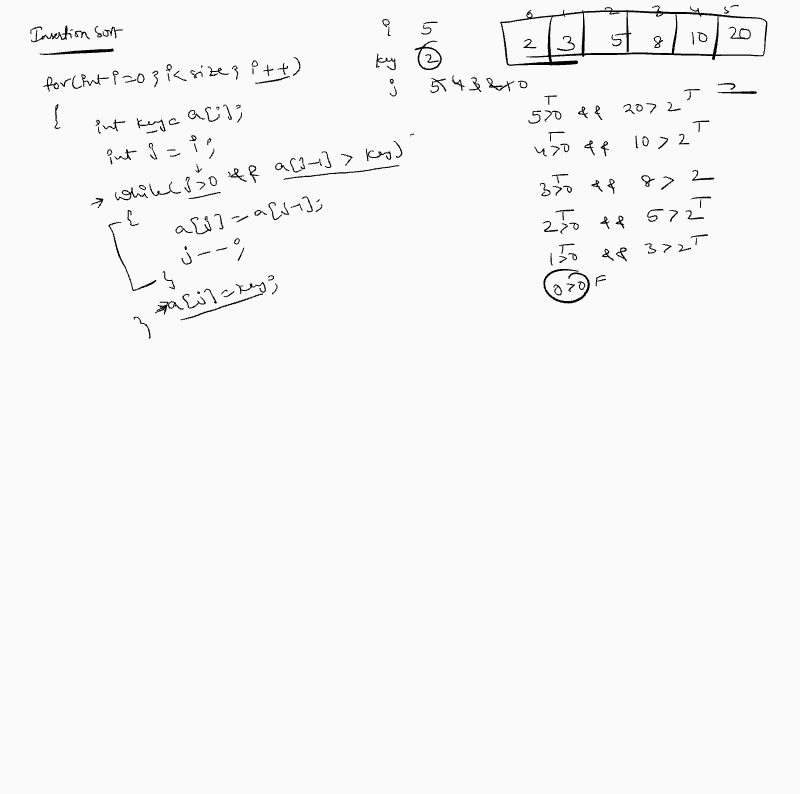 Insertion Sort
for(int i=0; i<size; i++)
{
int key = a[i];
int j = i;
→ while(j>0 && a[j-1] > key)
{
a[j] = a[j-1];
j--;
}
→ a[j] = key;
}
i 5
key 2
j 5 4 3 2 1 0
0 1 2 3 4 5
2 3 5 8 10 20
5>0 T && 20>2 T
4>0 T && 10>2 T
3>0 T && 8>2
2>0 T && 5>2 T
1>0 T && 3>2 T
0>0 F